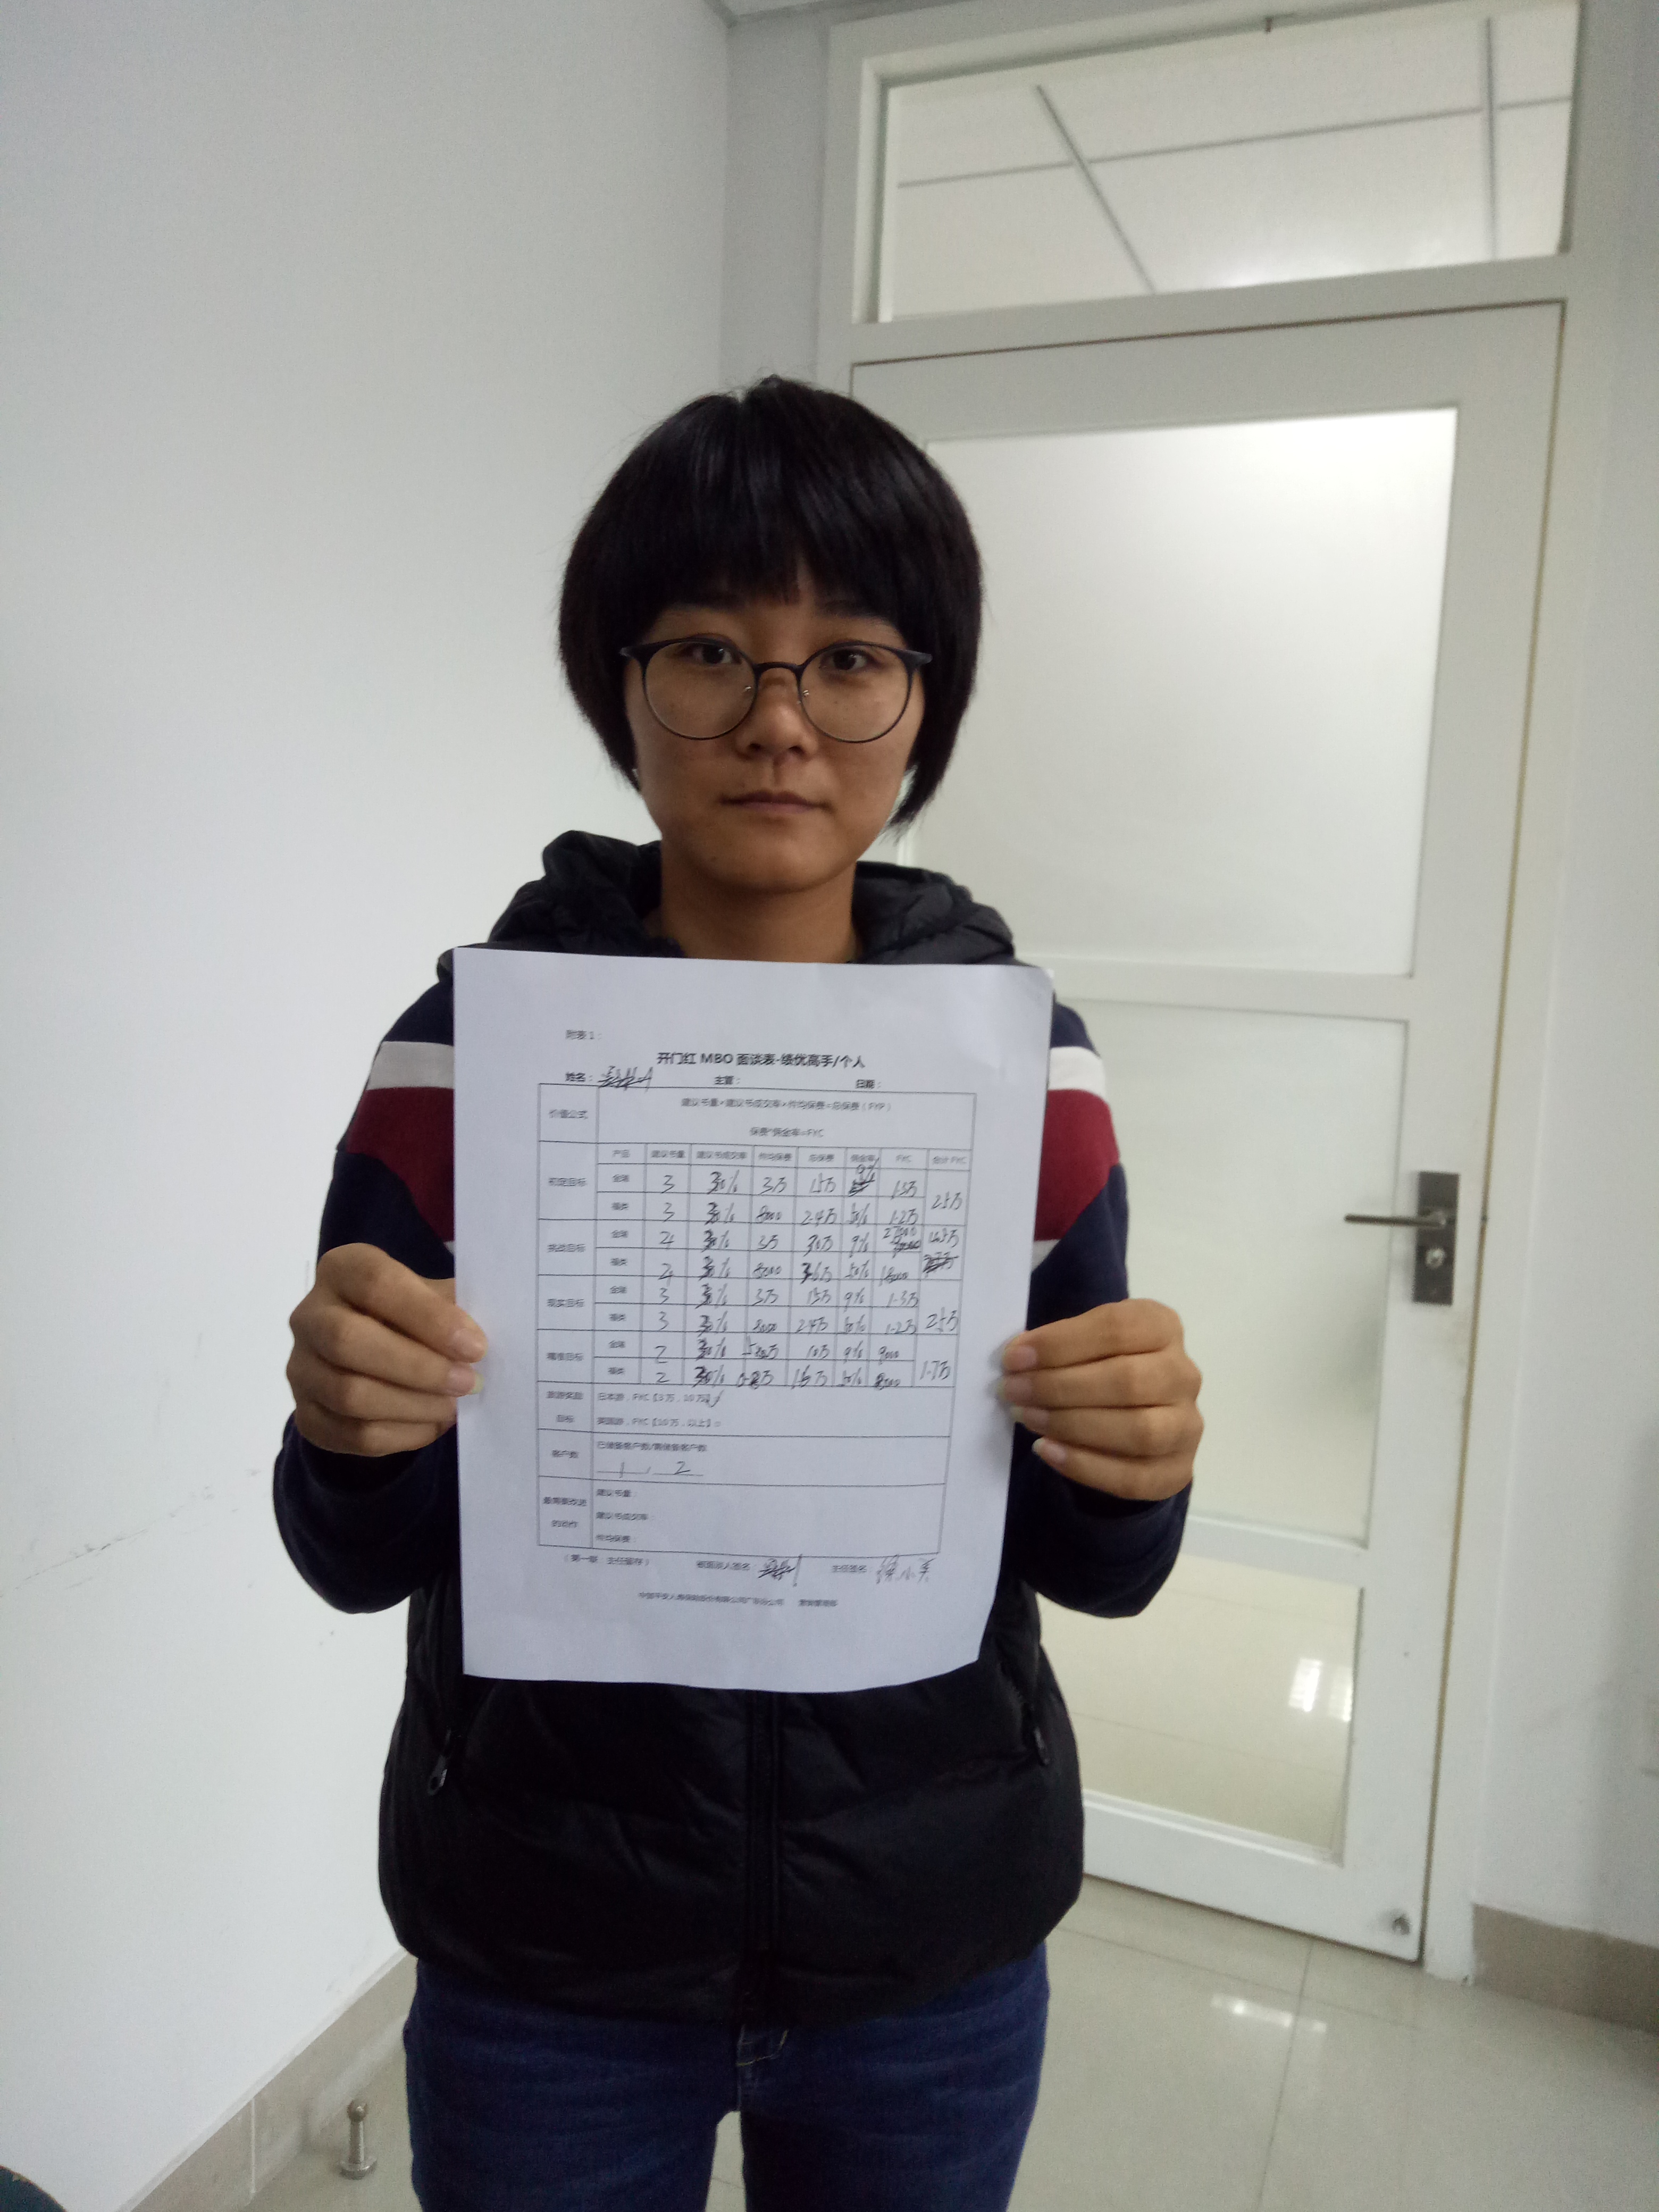 附表1：
开门红 MBO 面谈表-绩优高手/个人
姓名： 主管： 日期：
价值公式 建议书量*建议书成交率*件均保费=总保费（FYP）
保费*佣金率=FYC
产品 建议书量 建议书成交率 件均保费 总保费 佣金率 FYC 合计 FYC
初定目标 金瑞 3 30% 3万 15万 9% 1.3万 2.5万
福类 3 30% 8000 2.4万 50% 1.2万
挑战目标 金瑞 4 30% 3万 30万 9% 27000
福类 4 30% 8000 3.6万 50% 18000
现实目标 金瑞 3 30% 3万 15万 9% 1.3万 2.5万
福类 3 30% 8000 2.4万 50% 1.2万
瞄准目标 金瑞 2 30% 10万 9% 9000 1.7万
福类 2 30% 0.8万 1.6万 50% 8000
旅游奖励目标 日本游：FYC【3万，10万】
英国游：FYC【10万，以上】□
客户数 已储备客户数/需储备客户数
1 , 2
最需要改进的动作 建议书量：
建议书成交率：
件均保费：
（第一联 主任留存） 被面谈人签名： 主任签名：
中国平安人寿保险股份有限公司广东分公司 营销管理部